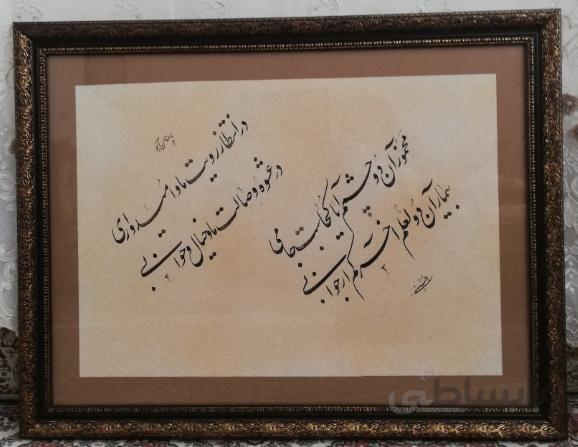 در انتظار رویت ما و امیدواری
در عشوه وصالت ما و خیال و خوابی
مخمور آن دو چشمم آیا کجاست جامی
بیمار آن دو لعلم آخر کم از جوابی